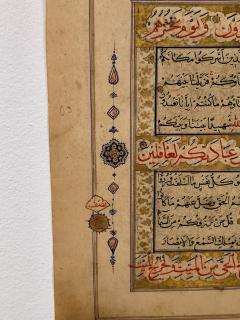 ون ويوم نحشرهم
للذين أشركوا مكانكم
كم فزيلنا بينهم
هم ما كنتم إيانا تعبدو
شهيدا بيننا وبينكم
عن عبادتكم لغافلين
كل نفس ما أسلفت و
الحق وضل عنهم ما كا
قل من يرزقكم من ال
يملك السمع والأبصار
الحي من الميت ويخرج الميت